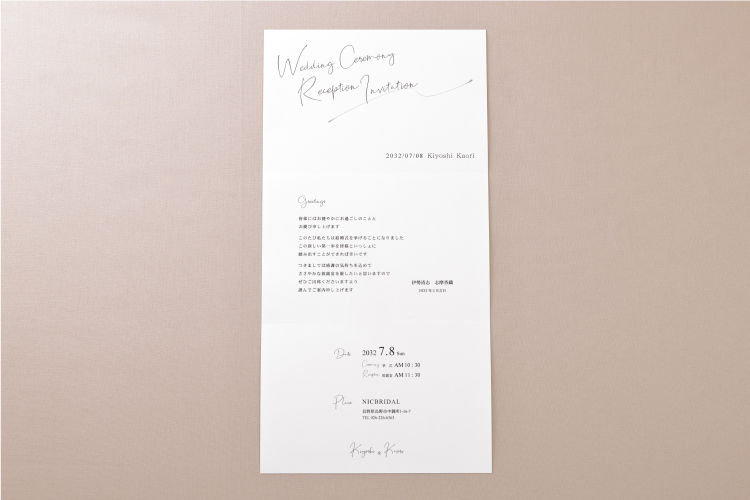 Wedding Ceremony
Reception Invitation
2032/07/08 Kiyoshi Kaori
Greetings
皆様にはお健やかにお過ごしのことと
お慶び申し上げます
このたび私たちは結婚式を挙げることになりました
この新しい第一歩を皆様といっしょに
踏み出すことができれば幸いです
つきましては感謝の気持ちを込めて
ささやかな披露宴を催したいと思いますので
ぜひご出席くださいますよう
謹んでご案内申し上げます
伊勢清志 志摩香織
Date 2032 7.8 Sun
Ceremony 挙 式 AM 10 : 30
Reception 披露宴 AM 11 : 30
Place NICBRIDAL
長野県長野市中御所
TEL 026-226-6363
Kiyoshi & Kaori